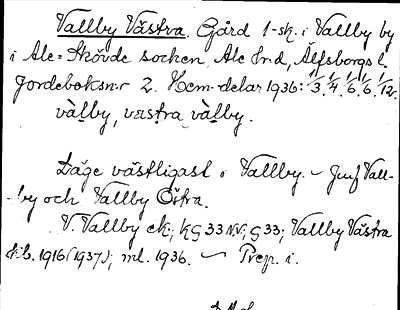 Vallby Västra. Gård 1-sk. i Vallby by
i Ale-Skövde socken, Ale hrd, Älfsborgs l.
Jordeboksn:r 2. Hem-delar 1936: 1/3, 1/4, 1/6, 1/6, 1/12.
vàlby, vestra vàlby.
Läge västligast i Vallby. – Jmf Vall-
by och Vallby Östra.
V. Vallby ek; kg 33 NV; g 33; Vallby Västra
1916 (1937); ml. 1936. – Prep. i.